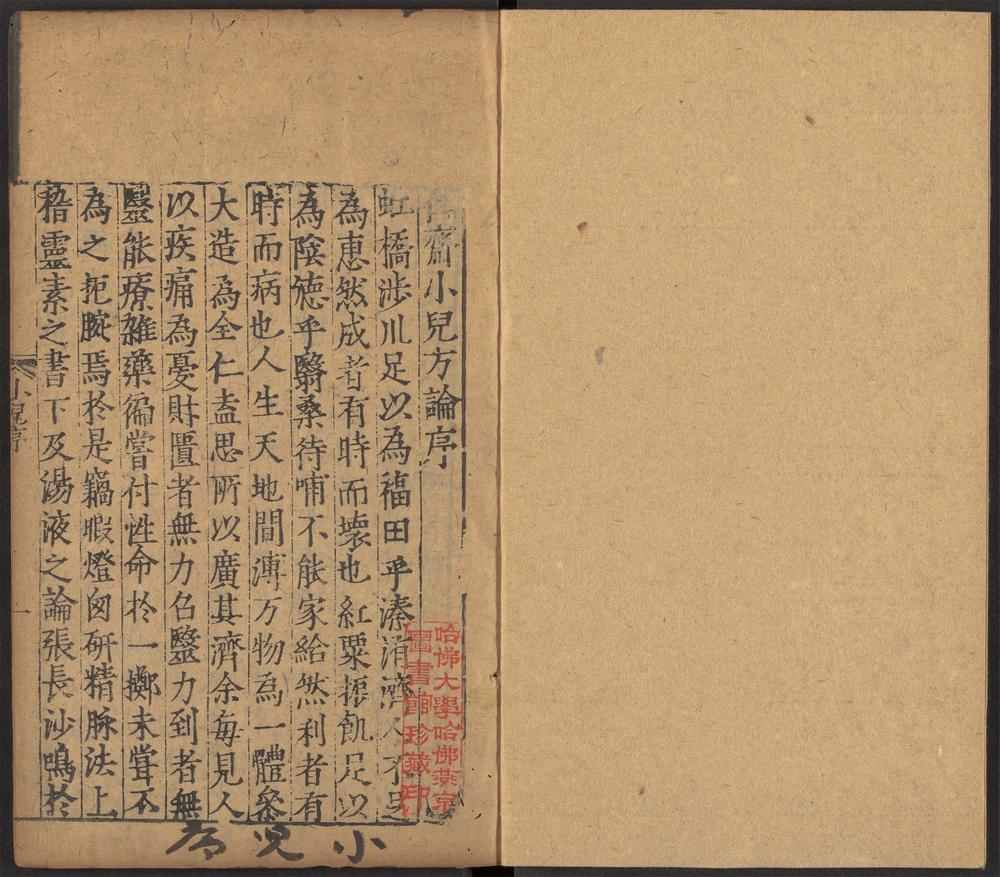 齋小兒方論序
虹橋涉川足以為福田乎溱洧濟人不足
為惠然成者有時而壞也紅粟振飢足以
為陰德乎翳桑待哺不能家給然利者有
時而病也人生天地間溥万物為一體叅
大造為全仁盍思所以廣其濟余每見人
以疾痛為憂財匱者無力召醫力到者無
醫能療雜藥徧嘗付性命於一擲未嘗不
為之扼腕焉於是竊暇燈囪研精脉法上
稽靈素之書下及湯液之論張長沙鳴於
小兒序
一
哈佛大學哈佛燕京
圖書館珍藏印
小兒